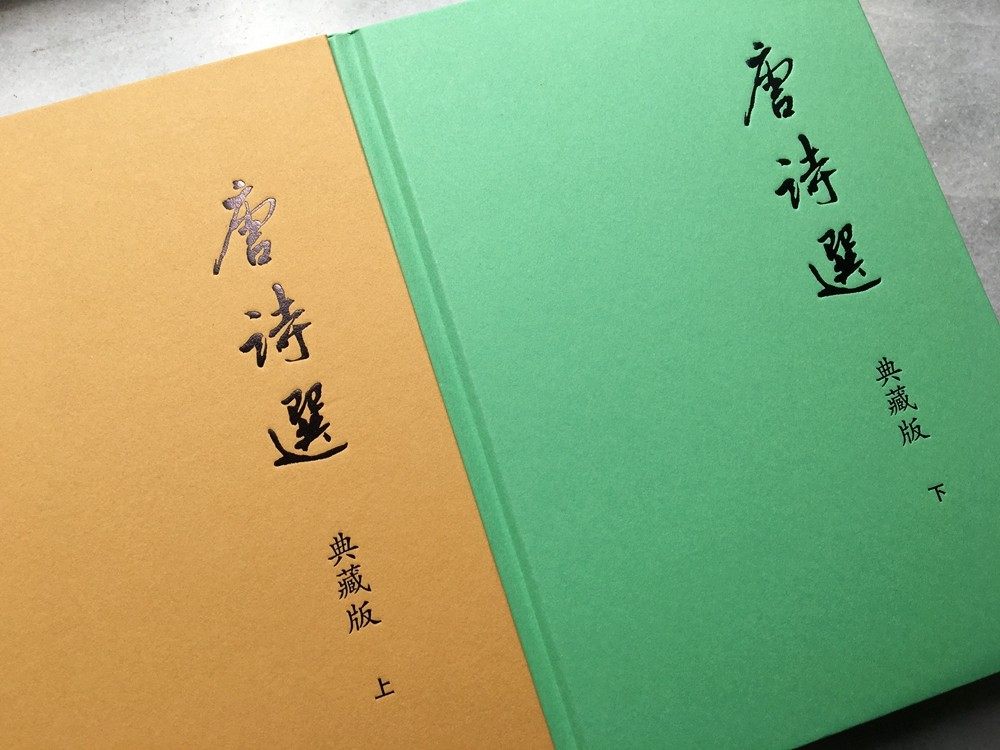 唐诗選
典藏版
上
唐诗選
典藏版
下